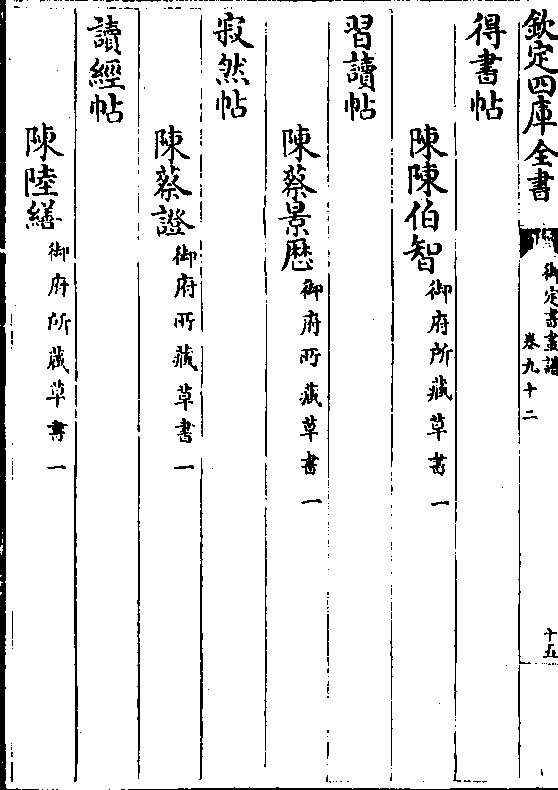 欽定四庫全書
御定書畫譜
卷九十二
十五
得書帖
陳陳伯智御府所藏草書一
習讀帖
陳蔡景歷御府所藏草書一
寂然帖
陳蔡證御府所藏草書一
讀經帖
陳陸繕御府所藏草書一